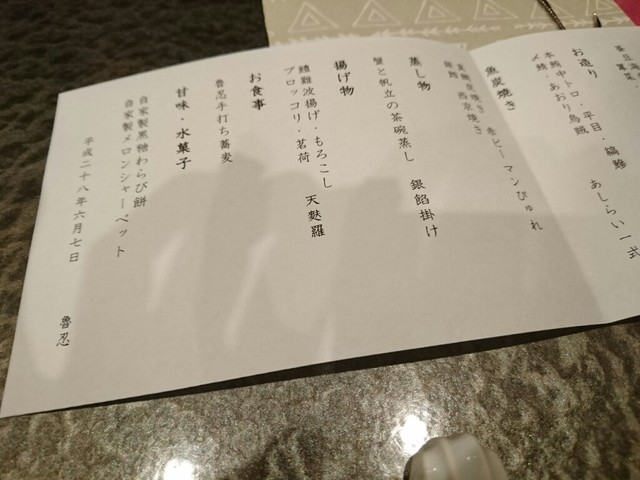 お造り
本鮪中トロ・平目・縞鯵　あしらい一式
〆鯖・あおり烏賊
魚炭焼き
西京焼き　赤ピーマンぴゅれ
蒸し物
蟹と帆立の茶碗蒸し　銀餡掛け
揚げ物
鱧難波揚げ・もろこし　天麩羅
ブロッコリ・茗荷
お食事
魯忍手打ち蕎麦
甘味・水菓子
自家製黒糖わらび餅
自家製メロンシャーベット
平成二十八年六月七日
魯忍